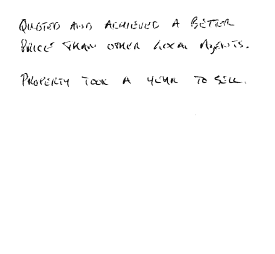 QUOTED AND ACHIEVED A BETTER
PRICE THAN OTHER LOCAL AGENTS.
PROPERTY TOOK A YEAR TO SELL.